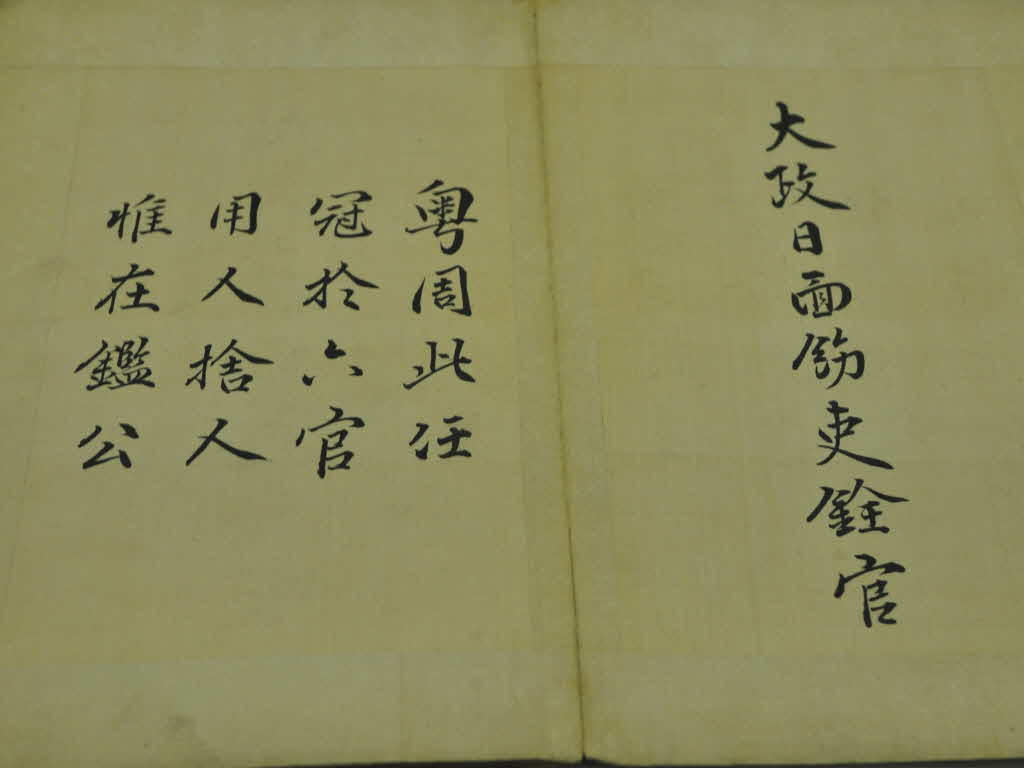 大政日面飭吏銓官
粵周此任
冠於六官
用人捨人
惟在鑑公